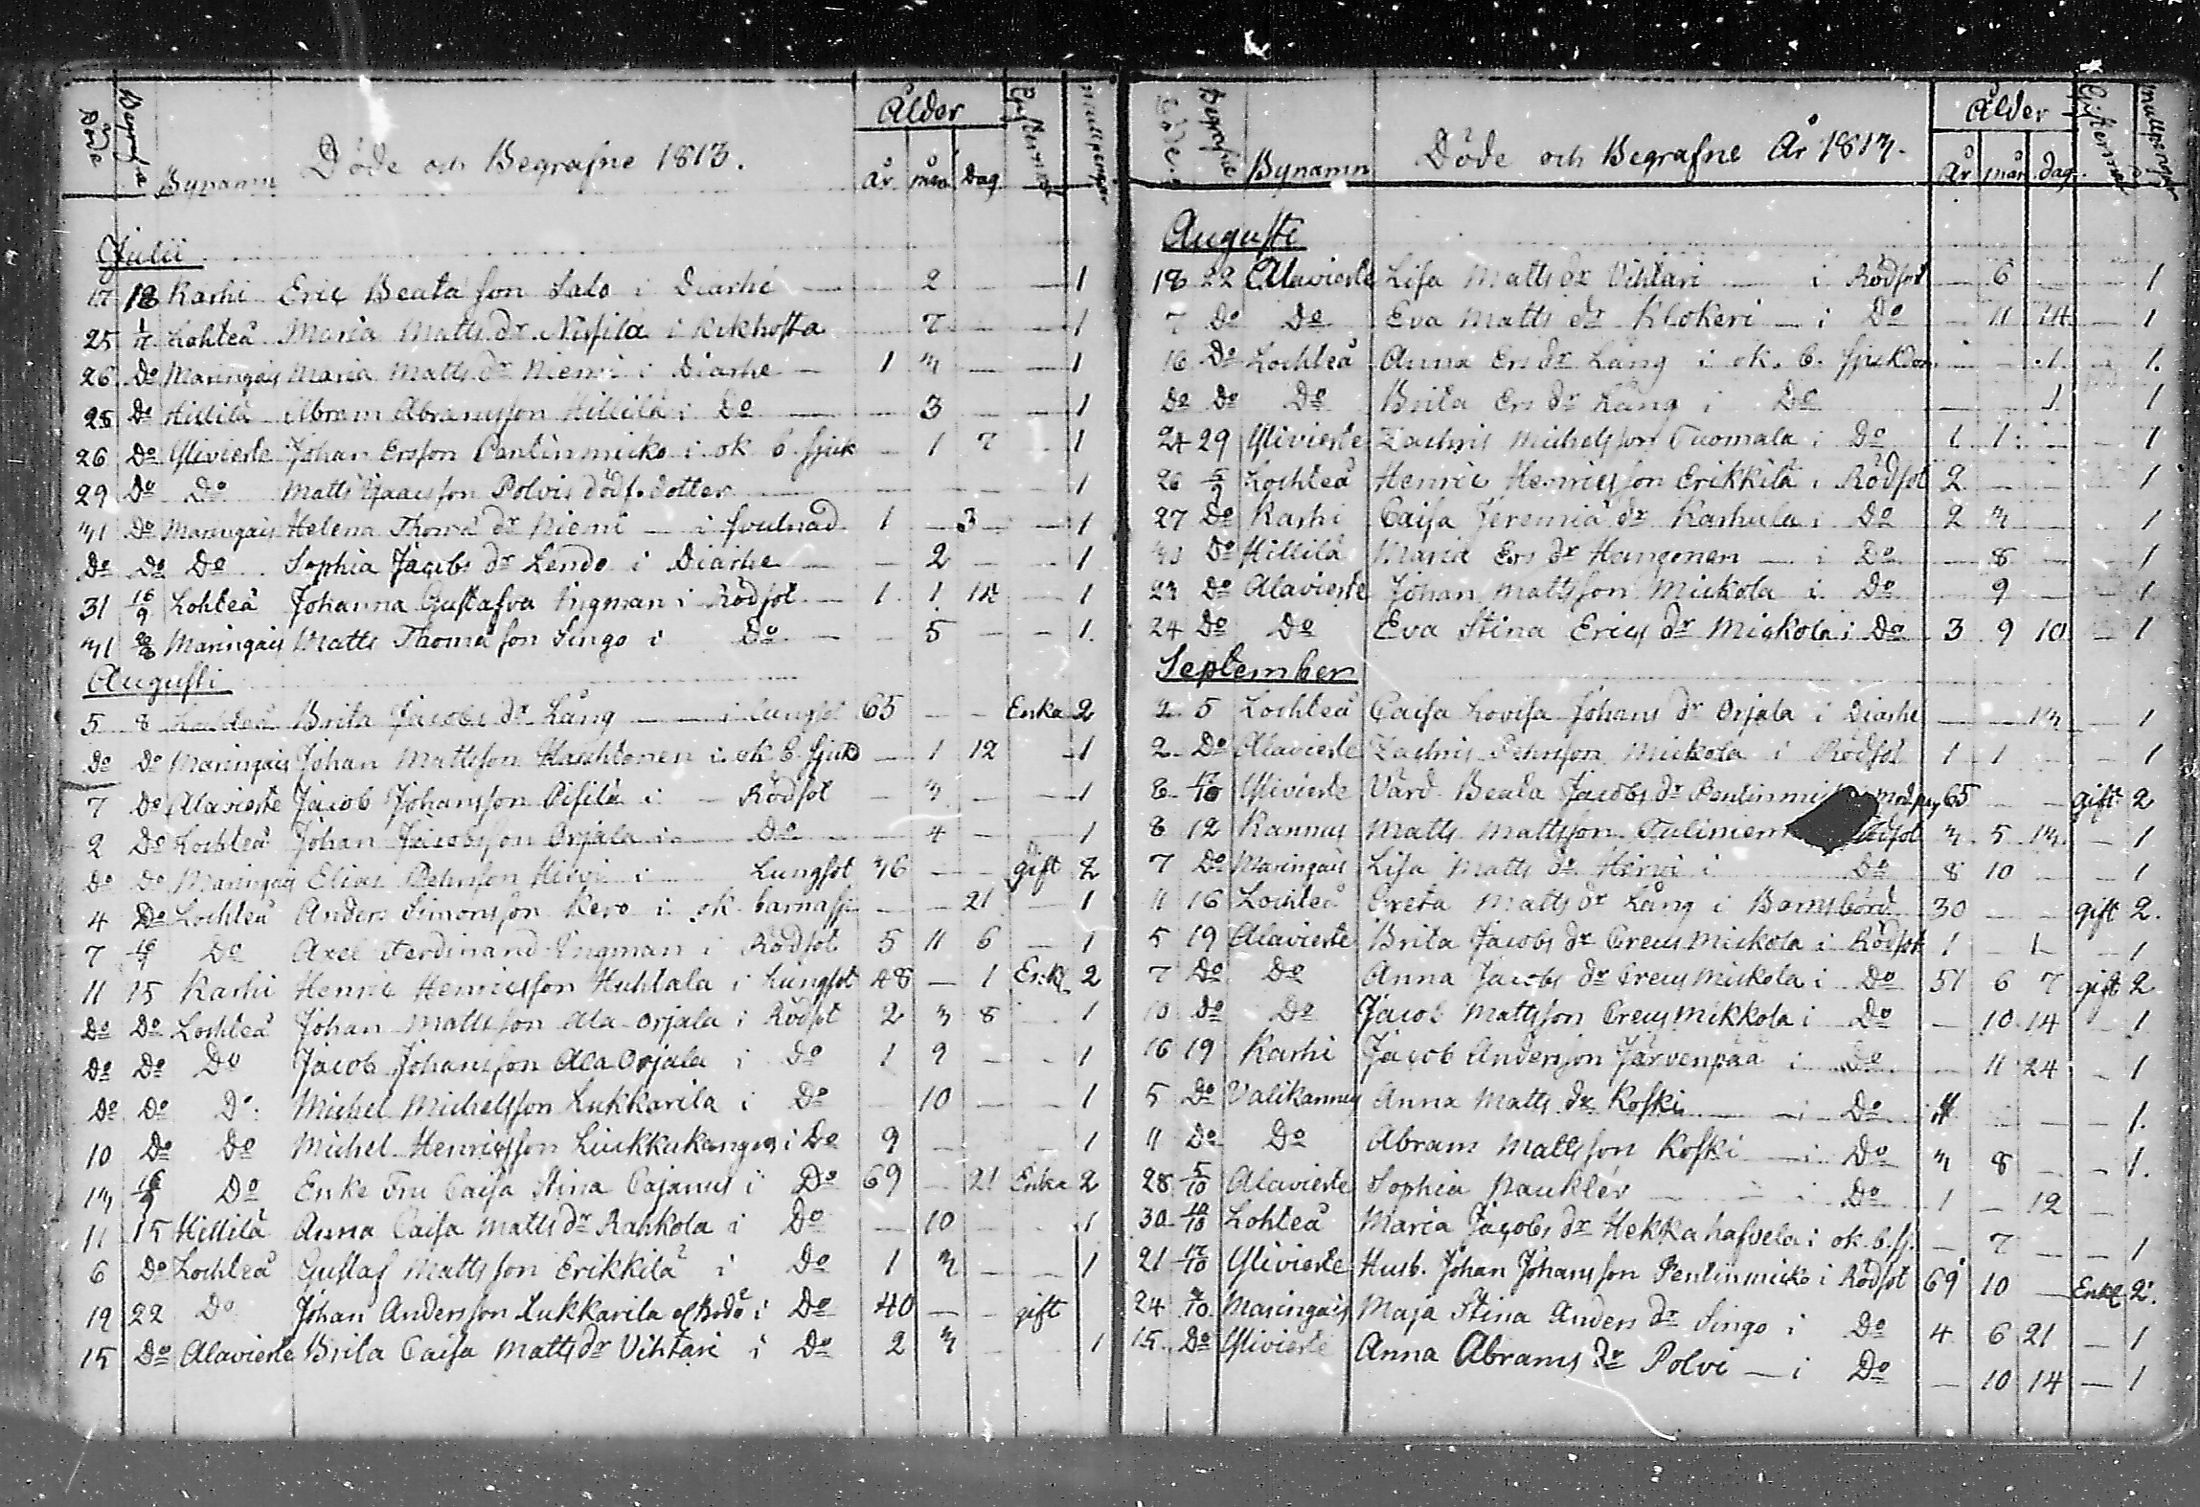 Döde Begrafne Bynamn Döde och Begrafne 1813. Ålder år mån dag Giftermål mullpengar
Julii
17 18 Karhi Eric Beata son Salo i Diarhé — 2 — — 1
25 Lohteå Maria Matts dr Nisfilä i Kikhosta 7 — — 1
26 Do Maringais Maria Matts dr Niemi i Diarhe — 1 3 — — 1
25 Do Hillilä Abram Abramsson Hillilä i Do — 3 — — 1
26 Do Ylivierte Johan Ersson Pentinmicko i ok b. sjuk — 1 7 — 1
29 Do Do Matts Isaacsson Polvis dödf. dotter 1
31 Do Maringais Helena Thoma dr Niemi — i svulnad 1 — 3 — 1
Do Do Do Sophia Jacobs dr Lendo i Diarhe — 2 — — 1
31 16/9 Lohteå Johanna Gustafva Ingman i Rödsot — 1 1 14 — 1
31 22/8 Maringais Matts Thoma son Singo i Do — 5 — — 1
Augusti
5 8 Lochteå Brita Jacobs dr Lång — i lungsot 65 — — Enka 2
Do Do Maringais Johan Mattsson i ok b. sjuk — 1 12 1
7 Do Alavierte Jacob Johansson Pisilä i — Rödsot — 3 — — 1
2 Do Lochteå Johan Jacobsson Orjala i Do — 4 — — 1
Do Do Maringais Elias Pehrsson Hirvi i — Lungsot 36 — — gift 2
4 Do Lochteå Anders Simonsson Kero i ok. barnasj. — — 21 — 1
7 16/9 Do Axel Ferdinand Ingman i Rödsot 5 11 6 — 1
11 15 Karhi Henric Henricsson Huhtala i Lungsot 48 — 1 Enkl 2
Do Do Lochteå Johan Mattsson Ala-Orjala i Rödsot 2 3 8 — 1
Do Do Do Jacob Johansson Ala Orjala i Do 1 9 — — 1
Do Do Do Michel Michelsson Lukkarila i Do — 10 — — 1
10 Do Do Michel Henricsson Liukkukangas i Do 9 — — 1
13 16/9 Do Enke Fru Caisa Stina Cajanus i Do 69 — 21 Enka 2
11 15 Hillilä Anna Caisa Matts dr Rahkola i Do — 10 — 1
6 Do Lochteå Gustaf Mattsson Erikkilä i Do 1 3 — — 1
19 22 Do Johan Andersson Lukkarila i Do 40 — — gift
15 Do Alavierte Brita Caisa Matts dr Vihtari i Do 2 3 — — 1
Döde Begrafne Bynamn Döde och Begrafne År 1813. Ålder År mån dag Giftermål mullpengar
Augusti
18 22 Alavierte Lisa Matts dr Vihtari — i Rödsot — 6 — — 1
7 Do Do Eva Matts dr Klokeri — i Do — 11 14 — 1
16 Do Lochteå Anna Ers dr Lång i ok. b. sjukdom — — 1 — 1.
Do Do Do Brita Ers dr Lång i Do — — 1 1
24 29 Ylivierte Zachris Michelsson Tuomala i Do 1 1 — — 1
26 5/9 Lochteå Henric Henricsson Erikkilä i Rödsot 2 — — 1
27 Do Karhi Caisa Jeremia dr Karhula i Do 2 3 — 1
Do Hillilä Maria Ers dr Hangonen — i Do — 8 — — 1
23 Do Alavierte Johan Mattsson Mickola i Do — 9 — — 1
24 Do Do Eva Stina Erics dr Mickola i Do 3 9 10 — 1
September
2 5 Lochteå Caisa Lovisa Johans dr Orjala i Diarhe — — 13 — 1
2 Do Alavierte Zachris Pehrsson Mickola i Rödsot 1 1 — — 1
6 17/10 Ylivierte Värd. Beata Jacobs dr 65 — — gift 2
8 12 Kannus Matts Mattsson Rödsot 3 5 13 — 1
7 Do Maringais Lisa Matts dr Hirvi i Do 8 10 — — 1
11 16 Lochteå Greta Matts dr Lång i Barnsbörd 30 — — gift 2.
5 19 Alavierte Brita Jacobs dr Mickola i Rödsot 1 — 1 — 1
7 Do Do Anna Jacobs dr Mickola i Do 51 6 7 gift 2
10 Do Do Jacob Mattsson Mikkola i Do — 10 14 — 1
16 19 Karhi Jacob Andersson Järvenpää i Do — 11 24 — 1
5 Do Välikannus Anna Matts dr Koski — i Do — — — 1.
11 Do Do Abram Mattsson Koski — i Do 3 8 — — 1.
28 5/10 Alavierte Sophia Naukler — i Do 1 — 12 —
30 10/10 Lohteå Maria Jacobs dr Hekkahafvela i ok. b. sj. — 7 — — 1
21 17/10 Ylivierte Husb. Johan Johansson Pentinmicko i Rödsot 69 10 — Enkl 2.
24 Maringais Maja Stina Anders dr Singo i Do 4 6 21 — 1
15 Do Ylivierte Anna Abrams dr Polvi — i Do — 10 14 — 1